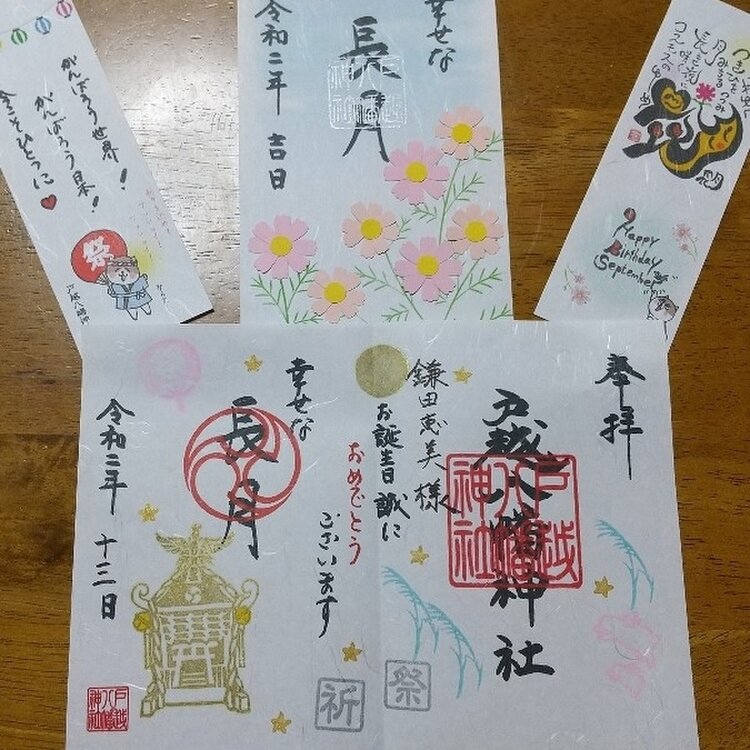 がんばろう世界!
がんばろう日本!
今こそひとつに
祭
戸越八幡神
幸せな
長月
令和二年 吉日
Happy
Birthday
September
奉拝
戸越八幡神社
戸越
八幡
神社
鎌田恵美様
お誕生日誠に
おめでとう
ございます
幸せな
長月
令和二年 十三日
祭
祈
戸越
八幡
神社